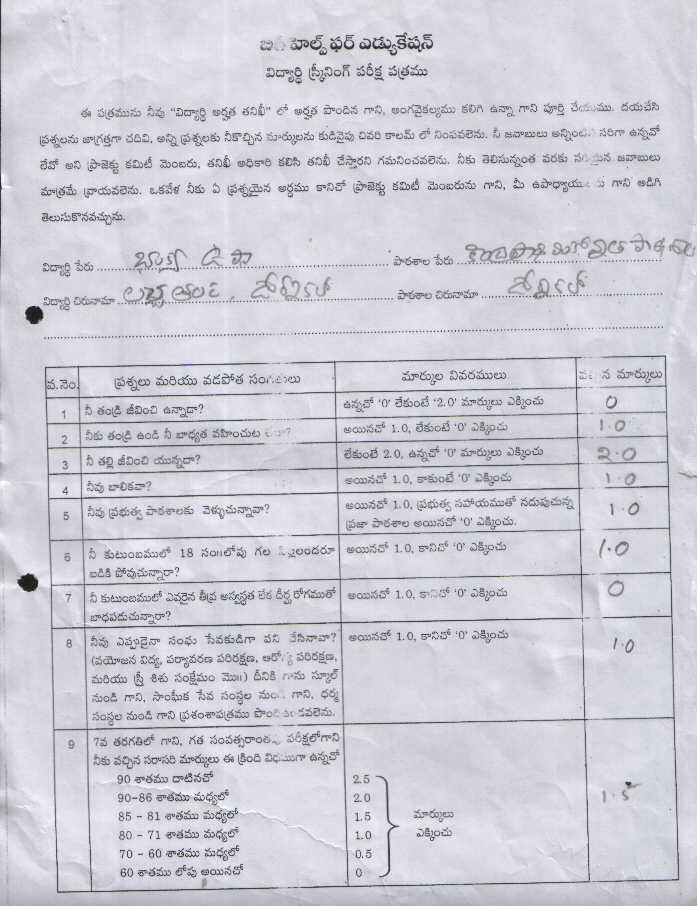 హెల్ప్ ఫర్ ఎడ్యుకేషన్
విద్యార్థి స్క్రీనింగ్ పరీక్ష పత్రము
ఈ పత్రమును నీవు "విద్యార్థి అర్హత తనిఖీ" లో అర్హత పొందిన గాని, అంగవైకల్యము కలిగి ఉన్నా గాని పూర్తి చేయుము. దయచేసి
ప్రశ్నలను జాగ్రత్తగా చదివి, అన్ని ప్రశ్నలకు నీకొచ్చిన మార్కులను కుడివైపు చివరి కాలమ్ లో నింపవలెను. నీ జవాబులు అన్నింటిని సరిగా ఉన్నవో
లేవో అని ప్రాజెక్టు కమిటీ మెంబరు, తనిఖీ అధికారి కలిసి తనిఖీ చేస్తారని గమనించవలెను. నీకు తెలిసున్నంత వరకు సరియైన జవాబులు
మాత్రమే వ్రాయవలెను. ఒకవేళ నీకు ఏ ప్రశ్నయైన అర్థము కానిచో ప్రాజెక్టు కమిటీ మెంబరును గాని, మీ ఉపాధ్యాయులను గాని అడిగి
తెలుసుకొనవచ్చును.
విద్యార్థి పేరు పాఠశాల పేరు
విద్యార్థి చిరునామా పాఠశాల చిరునామా
వ.నెం. ప్రశ్నలు మరియు వడపోత సంగతులు మార్కుల వివరములు వచ్చిన మార్కులు
1 నీ తండ్రి జీవించి ఉన్నాడా? ఉన్నచో '0' లేకుంటే '2.0' మార్కులు ఎక్కించు 0
2 నీకు తండ్రి ఉండి నీ బాధ్యత వహించుట లేదా? అయినచో 1.0, లేకుంటే '0' ఎక్కించు 1.0
3 నీ తల్లి జీవించి యున్నదా? లేకుంటే 2.0, ఉన్నచో '0' మార్కులు ఎక్కించు 2.0
4 నీవు బాలికవా? అయినచో 1.0, కాకుంటే '0' ఎక్కించు 1.0
5 నీవు ప్రభుత్వ పాఠశాలకు వెళ్ళుచున్నావా? అయినచో 1.0, ప్రభుత్వ సహాయముతో నడుపుచున్న 1.0
ప్రజా పాఠశాల అయినచో '0' ఎక్కించు.
6 నీ కుటుంబములో 18 సం॥లోపు గల పిల్లలందరూ అయినచో 1.0, కానిచో '0' ఎక్కించు 1.0
బడికి పోవుచున్నారా?
7 నీ కుటుంబములో ఎవరైన తీవ్ర అస్వస్థత లేక దీర్ఘ రోగముతో అయినచో 1.0, కానిచో '0' ఎక్కించు 0
బాధపడుచున్నారా?
8 నీవు ఎప్పుడైనా సంఘ సేవకుడిగా పని చేసినావా? అయినచో 1.0, కానిచో '0' ఎక్కించు 1.0
(వయోజన విద్య, పర్యావరణ పరిరక్షణ, ఆరోగ్య పరిరక్షణ,
మరియు స్త్రీ శిశు సంక్షేమం మొ॥) దీనికి గాను స్కూల్
నుండి గాని, సాంఘీక సేవ సంస్థల నుండి గాని, ధర్మ
సంస్థల నుండి గాని ప్రశంశాపత్రము పొంది ఉండవలెను.
9 7వ తరగతిలో గాని, గత సంవత్సరాంతపు పరీక్షలోగాని
నీకు వచ్చిన సరాసరి మార్కులు ఈ క్రింది విధముగా ఉన్నచో
90 శాతము దాటినచో 2.5
90-86 శాతము మధ్యలో 2.0 1.5
85 - 81 శాతము మధ్యలో 1.5 మార్కులు
80 - 71 శాతము మధ్యలో 1.0 ఎక్కించు
70 - 60 శాతము మధ్యలో 0.5
60 శాతము లోపు అయినచో 0